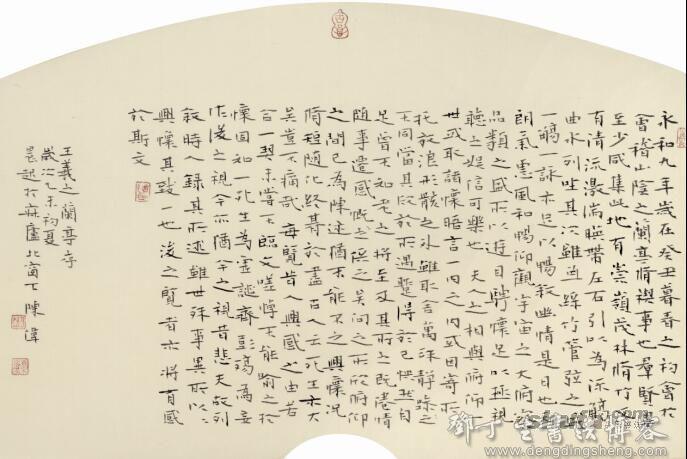 永和九年歲在癸丑暮春之初會於
會稽山陰之蘭亭脩禊事也羣賢畢
至少咸集此地有崇嶺茂林脩竹
有清流激湍暎帶左右引以為流觴
曲水列坐其次雖無絲竹管弦之
一觴一詠亦足以暢敘幽情是日也
朗氣惠風和暢仰觀宇宙之大俯
品類之盛所以遊目騁懷足以極視
聽之娛信可樂也夫人之相與俯仰一
世或取諸懷晤言一內之內或因寄所
托放浪形骸之外雖取舍萬殊靜躁之
不同當其欣於所遇暫得於己怏然自
足曾不知老之將至及其所之既倦情
隨事遷感慨係之矣向之所欣俯仰
之間已為陳迹猶不能不之興懷況
脩短隨化終期於盡古人云死生亦大
矣豈不痛哉每覽昔人興感之由若
合一契未嘗不臨文嗟悼不能喻之於
懷固知一死生為虛誕齊彭殤為妄
作後之視今亦猶今之視昔悲夫故列
敘時人錄其所述雖世殊事異所以
興懷其致一也後之覽者亦將有感
於斯文
王羲之蘭亭序
歲次乙未初夏
晨起於麻廬北窗下陳偉
鄧丁生書法博客
www.dengdingsheng.com